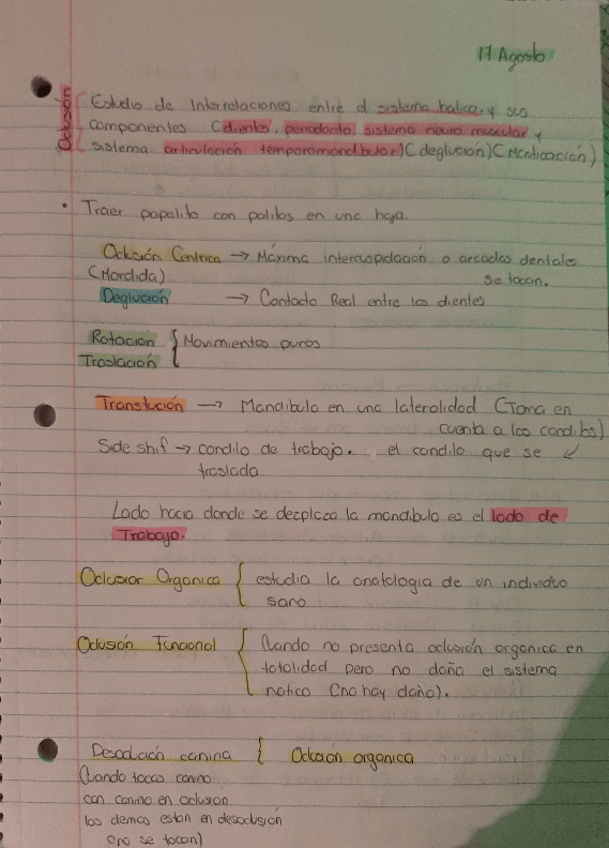 17 Agosto
Oclusión
Estudio de Interrelaciones entre el sistema natico y sus
componentes (diente, periodocto, sistema neuro muscular y
sistema articulación temporomandibular) (deglución) (Masticación)
• Traer papelito con politos en una hoja.
Oclusión Centrica → Máxima intercuspidación o arcadas dentales
(Mordida) se tocan.
Deglución → Contacto Real entre los dientes
Rotación { Movimientos puros
Traslación
Transtución → Mandibula en una lateralidad (Toma en
cuenta a los condilos)
Side shif → condilo de trabajo. el condilo que se ↙
traslada
Lado hacia donde se dezplaza la mandibula es el lado de
Trabajo.
Oclusion Organica { estudia la anatologia de un individuo
sano
Oclusión Funcional { Cuando no presenta oclusión organica en
totalidad pero no daña el sistema
natico (no hay daño).
Desoclución canina { Oclusión organica
Cuando tocas canino
con canino en oclusión
los demas estan en desoclusión
(no se tocan)